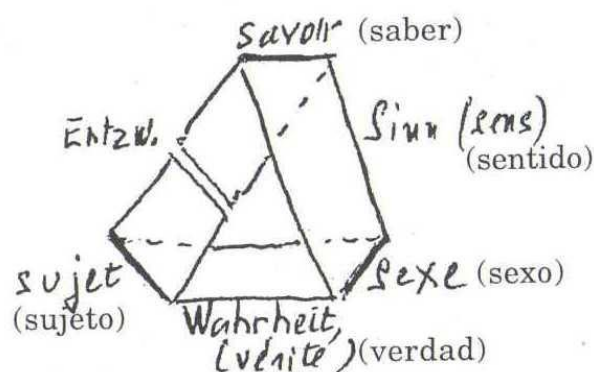 savoir (saber)
Entzw.
Sinn (sens)
(sentido)
sujet
(sujeto)
sexe (sexo)
Wahrheit,
(vérité) (verdad)